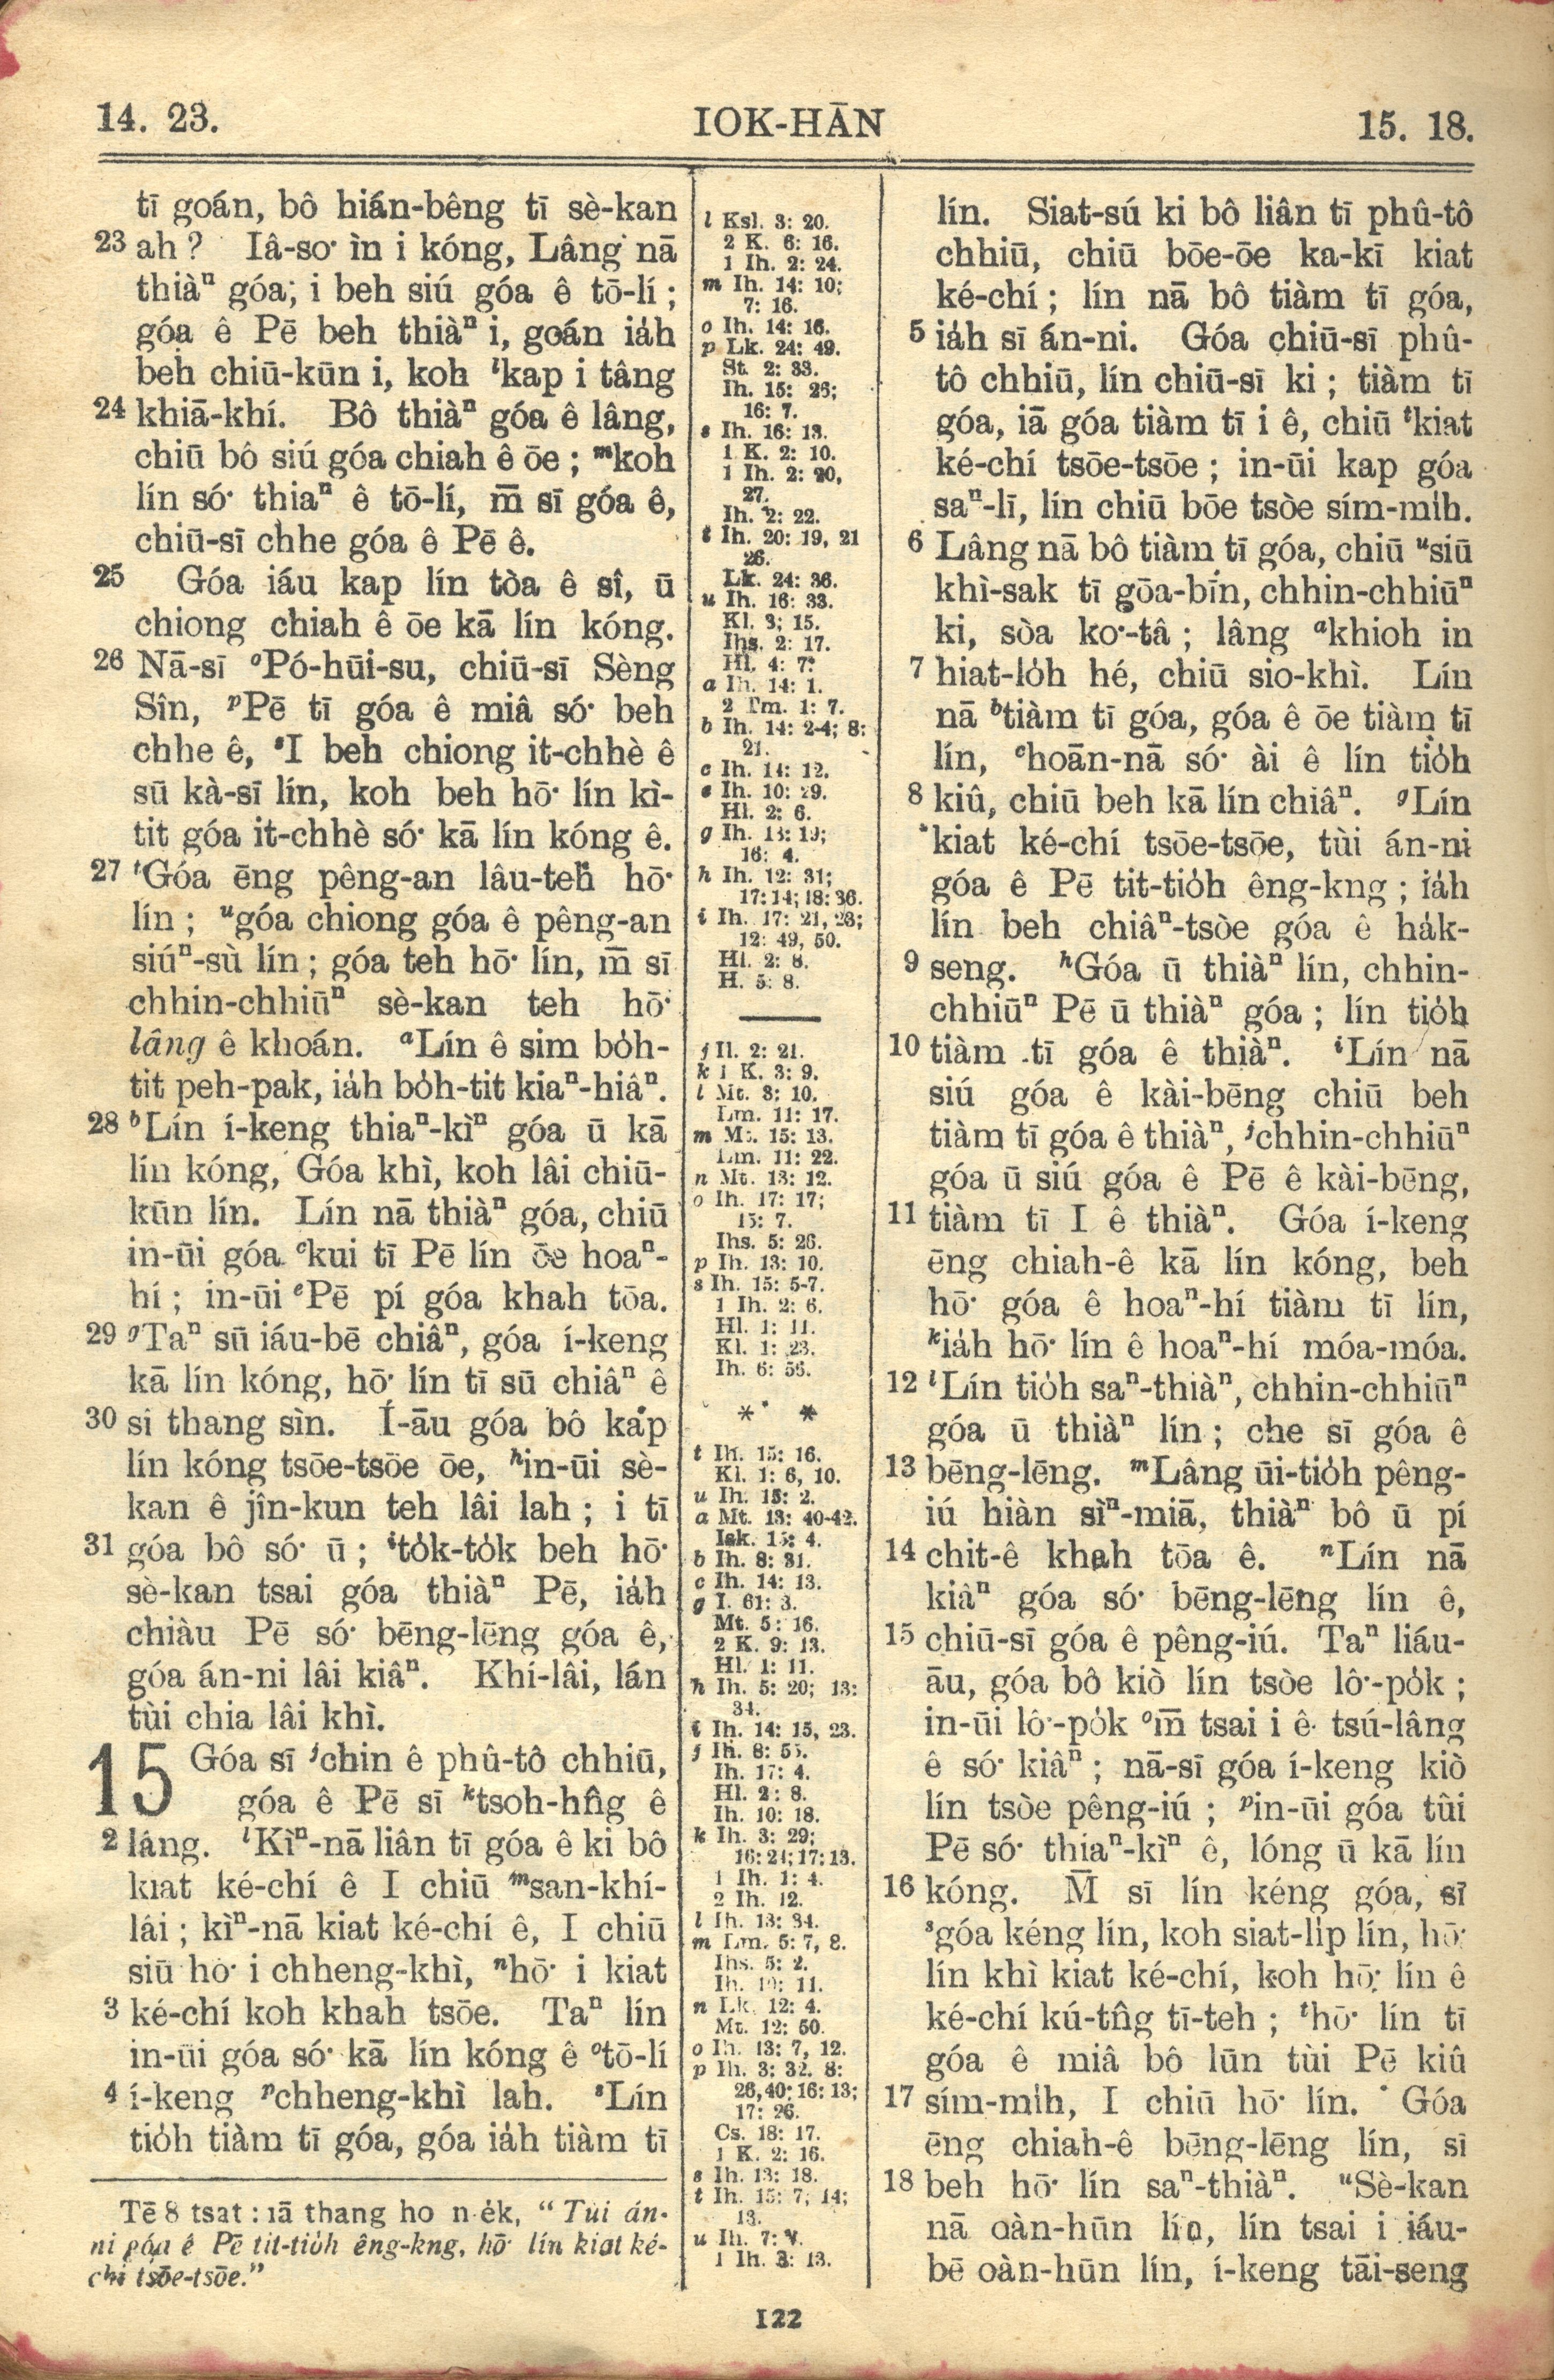 14. 23.
IOK-HĀN
15. 18.
tī goán, bô hián-bêng tī sè-kan
23 ah ? Iâ-so͘ ìn i kóng, Lâng nā
thiàⁿ góa; i beh siú góa ê tō-lí ;
góa ê Pē beh thiàⁿ i, goán ia̍h
beh chiū-kūn i, koh ˡkap i tâng
24 khiā-khí. Bô thiàⁿ góa ê lâng,
chiū bô siú góa chiah ê ōe ; ᵐkoh
lín só͘ thiaⁿ ê tō-lí, m̄ sī góa ê,
chiū-sī chhe góa ê Pē ê.
25 Góa iáu kap lín tòa ê sî, ū
chiong chiah ê ōe kā lín kóng.
26 Nā-sī ᵒPó-hūi-su, chiū-sī Sèng
Sîn, ᵖPē tī góa ê miâ só͘ beh
chhe ê, ˢI beh chiong it-chhè ê
sū kà-sī lín, koh beh hō͘ lín kì-
tit góa it-chhè só͘ kā lín kóng ê.
27 ᵗGóa ēng pêng-an lâu-teh hō͘
lín ; ᵘgóa chiong góa ê pêng-an
siúⁿ-sù lín ; góa teh hō͘ lín, m̄ sī
chhin-chhiūⁿ sè-kan teh hō͘
lâng ê khoán. ᵃLín ê sim bo̍h-
tit peh-pak, ia̍h bo̍h-tit kiaⁿ-hiâⁿ.
28 ᵇLín í-keng thiaⁿ-kìⁿ góa ū kā
lín kóng, Góa khì, koh lâi chiū-
kūn lín. Lín nā thiàⁿ góa, chiū
in-ūi góa ᶜkui tī Pē lín ōe hoaⁿ-
hí ; in-ūi ᵉPē pí góa khah tōa.
29 ᵍTaⁿ sū iáu-bē chiâⁿ, góa í-keng
kā lín kóng, hō͘ lín tī sū chiâⁿ ê
30 sî thang sìn. Í-āu góa bô kap
lín kóng tsōe-tsōe ōe, ʰin-ūi sè-
kan ê jîn-kun teh lâi lah ; i tī
31 góa bô só͘ ū ; ⁱto̍k-to̍k beh hō͘
sè-kan tsai góa thiàⁿ Pē, ia̍h
chiàu Pē só͘ bēng-lēng góa ê,
góa án-ni lâi kiâⁿ. Khí-lâi, lán
tùi chia lâi khì.
15 Góa sī ʲchin ê phû-tô chhiū,
góa ê Pē sī ᵏtsoh-hn̂g ê
2 lâng. ˡKìⁿ-nā liân tī góa ê ki bô
kiat ké-chí ê I chiū ᵐsan-khí-
lâi ; kìⁿ-nā kiat ké-chí ê, I chiū
siū hō͘ i chheng-khì, ⁿhō͘ i kiat
3 ké-chí koh khah tsōe. Taⁿ lín
in-ūi góa só͘ kā lín kóng ê ᵒtō-lí
4 í-keng ᵖchheng-khì lah. ˢLín
tio̍h tiàm tī góa, góa ia̍h tiàm tī
Tē 8 tsat : iā thang ho n e̍k, “ Tùi án-
ni góa ê Pē tit-tio̍h êng-kng, hō͘ lín kiat ké-
chí tsōe-tsōe.”
l Ksl. 3: 20.
2 K. 6: 16.
1 Ih. 2: 24.
m Ih. 14: 10;
7: 16.
o Ih. 14: 16.
p Lk. 24: 49.
St. 2: 33.
Ih. 15: 26;
16: 7.
s Ih. 16: 13.
1 K. 2: 10.
1 Ih. 2: 20,
27.
Ih. 2: 22.
t Ih. 20: 19, 21
26.
Lk. 24: 36.
u Ih. 16: 33.
Kl. 3; 15.
Ihs. 2: 17.
Hl. 4: 7.
a Ih. 14: 1.
2 Tm. 1: 7.
b Ih. 14: 2-4; 8:
21.
c Ih. 14: 12.
e Ih. 10: 29.
Hl. 2: 6.
g Ih. 13: 19;
16: 4.
h Ih. 12: 31;
17: 14; 18: 36.
i Ih. 17: 21, 23;
12: 49, 50.
Hl. 2: 8.
H. 5: 8.
j Il. 2: 21.
k 1 K. 3: 9.
l Mt. 3: 10.
Lm. 11: 17.
m Mt. 15: 13.
Lm. 11: 22.
n Mt. 13: 12.
o Ih. 17: 17;
15: 7.
Ihs. 5: 26.
p Ih. 13: 10.
s Ih. 15: 5-7.
1 Ih. 2: 6.
Hl. 1: 11.
Kl. 1: 23.
Ih. 6: 56.
* *
t Ih. 15: 16.
Kl. 1: 6, 10.
u Ih. 15: 2.
a Mt. 13: 40-42.
Isk. 15: 4.
b Ih. 8: 31.
c Ih. 14: 13.
g I. 61: 3.
Mt. 5: 16.
2 K. 9: 13.
Hl. 1: 11.
h Ih. 5: 20; 13:
34.
i Ih. 14: 15, 23.
j Ih. 8: 55.
Ih. 17: 4.
Hl. 2: 8.
Ih. 10: 18.
k Ih. 3: 29;
16: 24; 17: 13.
1 Ih. 1: 4.
2 Ih. 12.
l Ih. 13: 34.
m Lm. 5: 7, 8.
Ihs. 5: 2.
Ih. 10: 11.
n Lk. 12: 4.
Mt. 12: 50.
o Ih. 13: 7, 12.
p Ih. 3: 32. 8:
26, 40; 16: 13;
17: 26.
Cs. 18: 17.
1 K. 2: 16.
s Ih. 13: 18.
t Ih. 15: 7; 14;
13.
u Ih. 7: 7.
1 Ih. 3: 13.
lín. Siat-sú ki bô liân tī phû-tô
chhiū, chiū bōe-ōe ka-kī kiat
ké-chí ; lín nā bô tiàm tī góa,
5 ia̍h sī án-ni. Góa chiū-sī phû-
tô chhiū, lín chiū-sī ki ; tiàm tī
góa, iā góa tiàm tī i ê, chiū ᵗkiat
ké-chí tsōe-tsōe ; in-ūi kap góa
saⁿ-lī, lín chiū bōe tsòe sím-mi̍h.
6 Lâng nā bô tiàm tī góa, chiū ᵘsiū
khì-sak tī gōa-bīn, chhin-chhiūⁿ
ki, sòa ko͘-tâ ; lâng ᵃkhioh in
7 hiat-lo̍h hé, chiū sio-khì. Lín
nā ᵇtiàm tī góa, góa ê ōe tiàm tī
lín, ᶜhoān-nā só͘ ài ê lín tio̍h
8 kiû, chiū beh kā lín chiâⁿ. ᵍLín
kiat ké-chí tsōe-tsōe, tùi án-ni
góa ê Pē tit-tio̍h êng-kng ; ia̍h
lín beh chiâⁿ-tsòe góa ê ha̍k-
9 seng. ʰGóa ū thiàⁿ lín, chhin-
chhiūⁿ Pē ū thiàⁿ góa ; lín tio̍h
10 tiàm tī góa ê thiàⁿ. ⁱLín nā
siú góa ê kài-bēng chiū beh
tiàm tī góa ê thiàⁿ, ʲchhin-chhiūⁿ
góa ū siú góa ê Pē ê kài-bēng,
11 tiàm tī I ê thiàⁿ. Góa í-keng
ēng chiah-ê kā lín kóng, beh
hō͘ góa ê hoaⁿ-hí tiàm tī lín,
ᵏia̍h hō͘ lín ê hoaⁿ-hí móa-móa.
12 ˡLín tio̍h saⁿ-thiàⁿ, chhin-chhiūⁿ
góa ū thiàⁿ lín ; che sī góa ê
13 bēng-lēng. ᵐLâng ūi-tio̍h pêng-
iú hiàn sìⁿ-miā, thiàⁿ bô ū pí
14 chit-ê khah tōa ê. ⁿLín nā
kiâⁿ góa só͘ bēng-lēng lín ê,
15 chiū-sī góa ê pêng-iú. Taⁿ liáu-
āu, góa bô kiò lín tsòe lô͘-po̍k ;
in-ūi lô͘-po̍k ᵒm̄ tsai i ê tsú-lâng
ê só͘ kiâⁿ ; nā-sī góa í-keng kiò
lín tsòe pêng-iú ; ᵖin-ūi góa tùi
Pē só͘ thiaⁿ-kìⁿ ê, lóng ū kā lín
16 kóng. M̄ sī lín kéng góa, sī
ˢgóa kéng lín, koh siat-li̍p lín, hō͘
lín khì kiat ké-chí, koh hō͘ lín ê
ké-chí kú-tn̂g tī-teh ; ᵗhō͘ lín tī
góa ê miâ bô lūn tùi Pē kiû
17 sím-mi̍h, I chiū hō͘ lín. Góa
ēng chiah-ê bēng-lēng lín, sī
18 beh hō͘ lín saⁿ-thiàⁿ. ᵘSè-kan
nā oàn-hūn lín, lín tsai i iáu-
bē oàn-hūn lín, í-keng tāi-seng
122